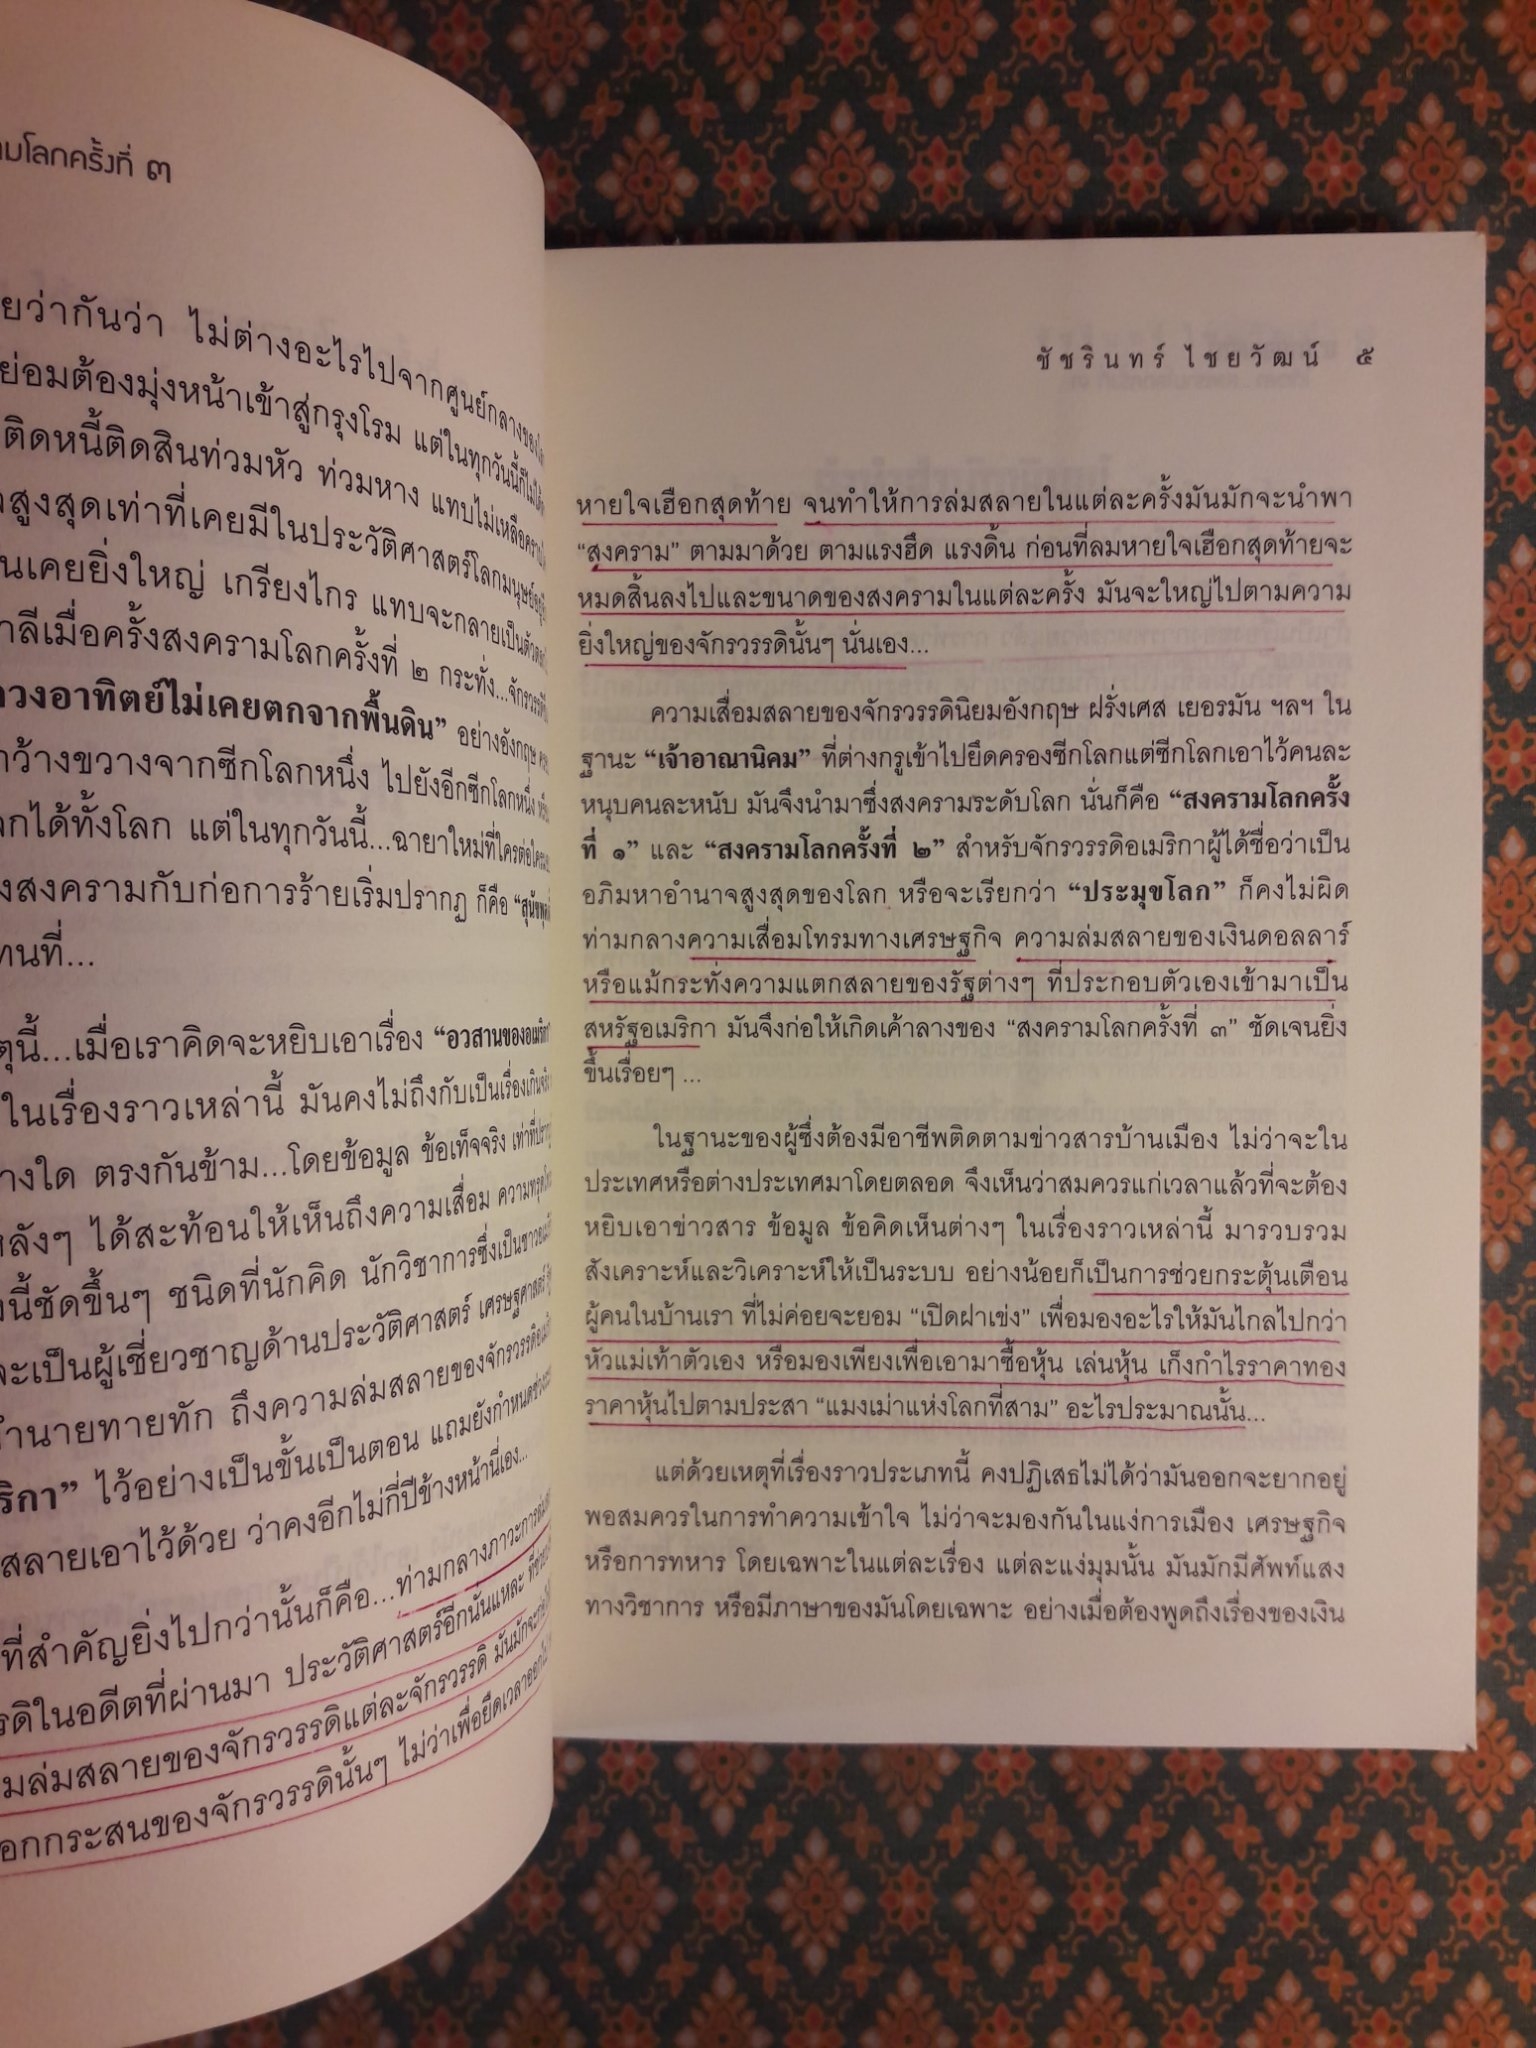 มโลกครั้งที่ ๓
ยว่ากันว่า ไม่ต่างอะไรไปจากศูนย์กลางของโลก
ย่อมต้องมุ่งหน้าเข้าสู่กรุงโรม แต่ในทุกวันนี้ก็ไม่ได้
ติดหนี้ติดสินท่วมหัว ท่วมหาง แทบไม่เหลือ
สูงสุดเท่าที่เคยมีในประวัติศาสตร์โลกมนุษย์
นเคยยิ่งใหญ่ เกรียงไกร แทบจะกลายเป็นตัวตลก
าลีเมื่อครั้งสงครามโลกครั้งที่ ๒ กระทั่ง...จักรวรรดิ
วงอาทิตย์ไม่เคยตกจากพื้นดิน” อย่างอังกฤษ
ว้างขวางจากซีกโลกหนึ่ง ไปยังอีกซีกโลกหนึ่ง
กได้ทั้งโลก แต่ในทุกวันนี้...ฉายาใหม่ที่ใครต่อใคร
งสงครามกับก่อการร้ายเริ่มปรากฏ ก็คือ
ทนที่...
ตุนี้...เมื่อเราคิดจะหยิบเอาเรื่อง “อวสานของอเมริกา”
ในเรื่องราวเหล่านี้ มันคงไม่ถึงกับเป็นเรื่องเกิน
างใด ตรงกันข้าม...โดยข้อมูล ข้อเท็จจริง เท่าที่
หลังๆ ได้สะท้อนให้เห็นถึงความเสื่อม ความ
งนี้ชัดขึ้นๆ ชนิดที่นักคิด นักวิชาการซึ่งเป็นชาว
จะเป็นผู้เชี่ยวชาญด้านประวัติศาสตร์ เศรษฐศาสตร์
ทำนายทายทัก ถึงความล่มสลายของจักรวรรดิ
ริกา” ไว้อย่างเป็นขั้นเป็นตอน แถมยังกำหนดช่วง
สลายเอาไว้ด้วย ว่าคงอีกไม่กี่ปีข้างหน้านี่เอง...
ที่สำคัญยิ่งไปกว่านั้นก็คือ...ท่ามกลางภาวะการ
รดิในอดีตที่ผ่านมา ประวัติศาสตร์อีกนั่นแหละ ที่
มล่มสลายของจักรวรรดิแต่ละจักรวรรดิ มันมักจะ
อกกระสนของจักรวรรดินั้นๆ ไม่ว่าเพื่อยืดเวลาออก
ชัชรินทร์ ไชยวัฒน์ ๕
หายใจเฮือกสุดท้าย จนทำให้การล่มสลายในแต่ละครั้งมันมักจะนำพา
“สงคราม” ตามมาด้วย ตามแรงฮึด แรงดิ้น ก่อนที่ลมหายใจเฮือกสุดท้ายจะ
หมดสิ้นลงไปและขนาดของสงครามในแต่ละครั้ง มันจะใหญ่ไปตามความ
ยิ่งใหญ่ของจักรวรรดินั้นๆ นั่นเอง...
ความเสื่อมสลายของจักรวรรดินิยมอังกฤษ ฝรั่งเศส เยอรมัน ฯลฯ ใน
ฐานะ “เจ้าอาณานิคม” ที่ต่างกรูเข้าไปยึดครองซีกโลกแต่ซีกโลกเอาไว้คนละ
หนุบคนละหนับ มันจึงนำมาซึ่งสงครามระดับโลก นั่นก็คือ “สงครามโลกครั้ง
ที่ ๑” และ “สงครามโลกครั้งที่ ๒” สำหรับจักรวรรดิอเมริกาผู้ได้ชื่อว่าเป็น
อภิมหาอำนาจสูงสุดของโลก หรือจะเรียกว่า “ประมุขโลก” ก็คงไม่ผิด
ท่ามกลางความเสื่อมโทรมทางเศรษฐกิจ ความล่มสลายของเงินดอลลาร์
หรือแม้กระทั่งความแตกสลายของรัฐต่างๆ ที่ประกอบตัวเองเข้ามาเป็น
สหรัฐอเมริกา มันจึงก่อให้เกิดเค้าลางของ “สงครามโลกครั้งที่ ๓” ชัดเจนยิ่ง
ขึ้นเรื่อยๆ ...
ในฐานะของผู้ซึ่งต้องมีอาชีพติดตามข่าวสารบ้านเมือง ไม่ว่าจะใน
ประเทศหรือต่างประเทศมาโดยตลอด จึงเห็นว่าสมควรแก่เวลาแล้วที่จะต้อง
หยิบเอาข่าวสาร ข้อมูล ข้อคิดเห็นต่างๆ ในเรื่องราวเหล่านี้ มารวบรวม
สังเคราะห์และวิเคราะห์ให้เป็นระบบ อย่างน้อยก็เป็นการช่วยกระตุ้นเตือน
ผู้คนในบ้านเรา ที่ไม่ค่อยจะยอม “เปิดฝาเข่ง” เพื่อมองอะไรให้มันไกลไปกว่า
หัวแม่เท้าตัวเอง หรือมองเพียงเพื่อเอามาซื้อหุ้น เล่นหุ้น เก็งกำไรราคาทอง
ราคาหุ้นไปตามประสา “แมงเม่าแห่งโลกที่สาม” อะไรประมาณนั้น...
แต่ด้วยเหตุที่เรื่องราวประเภทนี้ คงปฏิเสธไม่ได้ว่ามันออกจะยากอยู่
พอสมควรในการทำความเข้าใจ ไม่ว่าจะมองกันในแง่การเมือง เศรษฐกิจ
หรือการทหาร โดยเฉพาะในแต่ละเรื่อง แต่ละแง่มุมนั้น มันมักมีศัพท์แสง
ทางวิชาการ หรือมีภาษาของมันโดยเฉพาะ อย่างเมื่อต้องพูดถึงเรื่องของเงิน